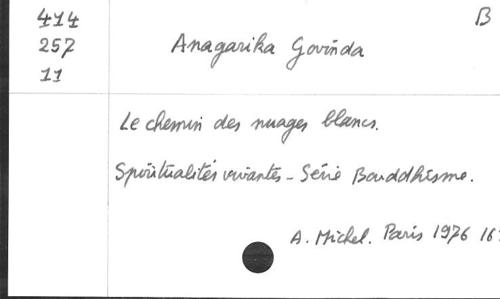 414
257
11
B
Anagarika Govinda
Le chemin des nuages blancs.
Spiritualités vivantes - Série Bouddhisme.
A. Michel. Paris 1976